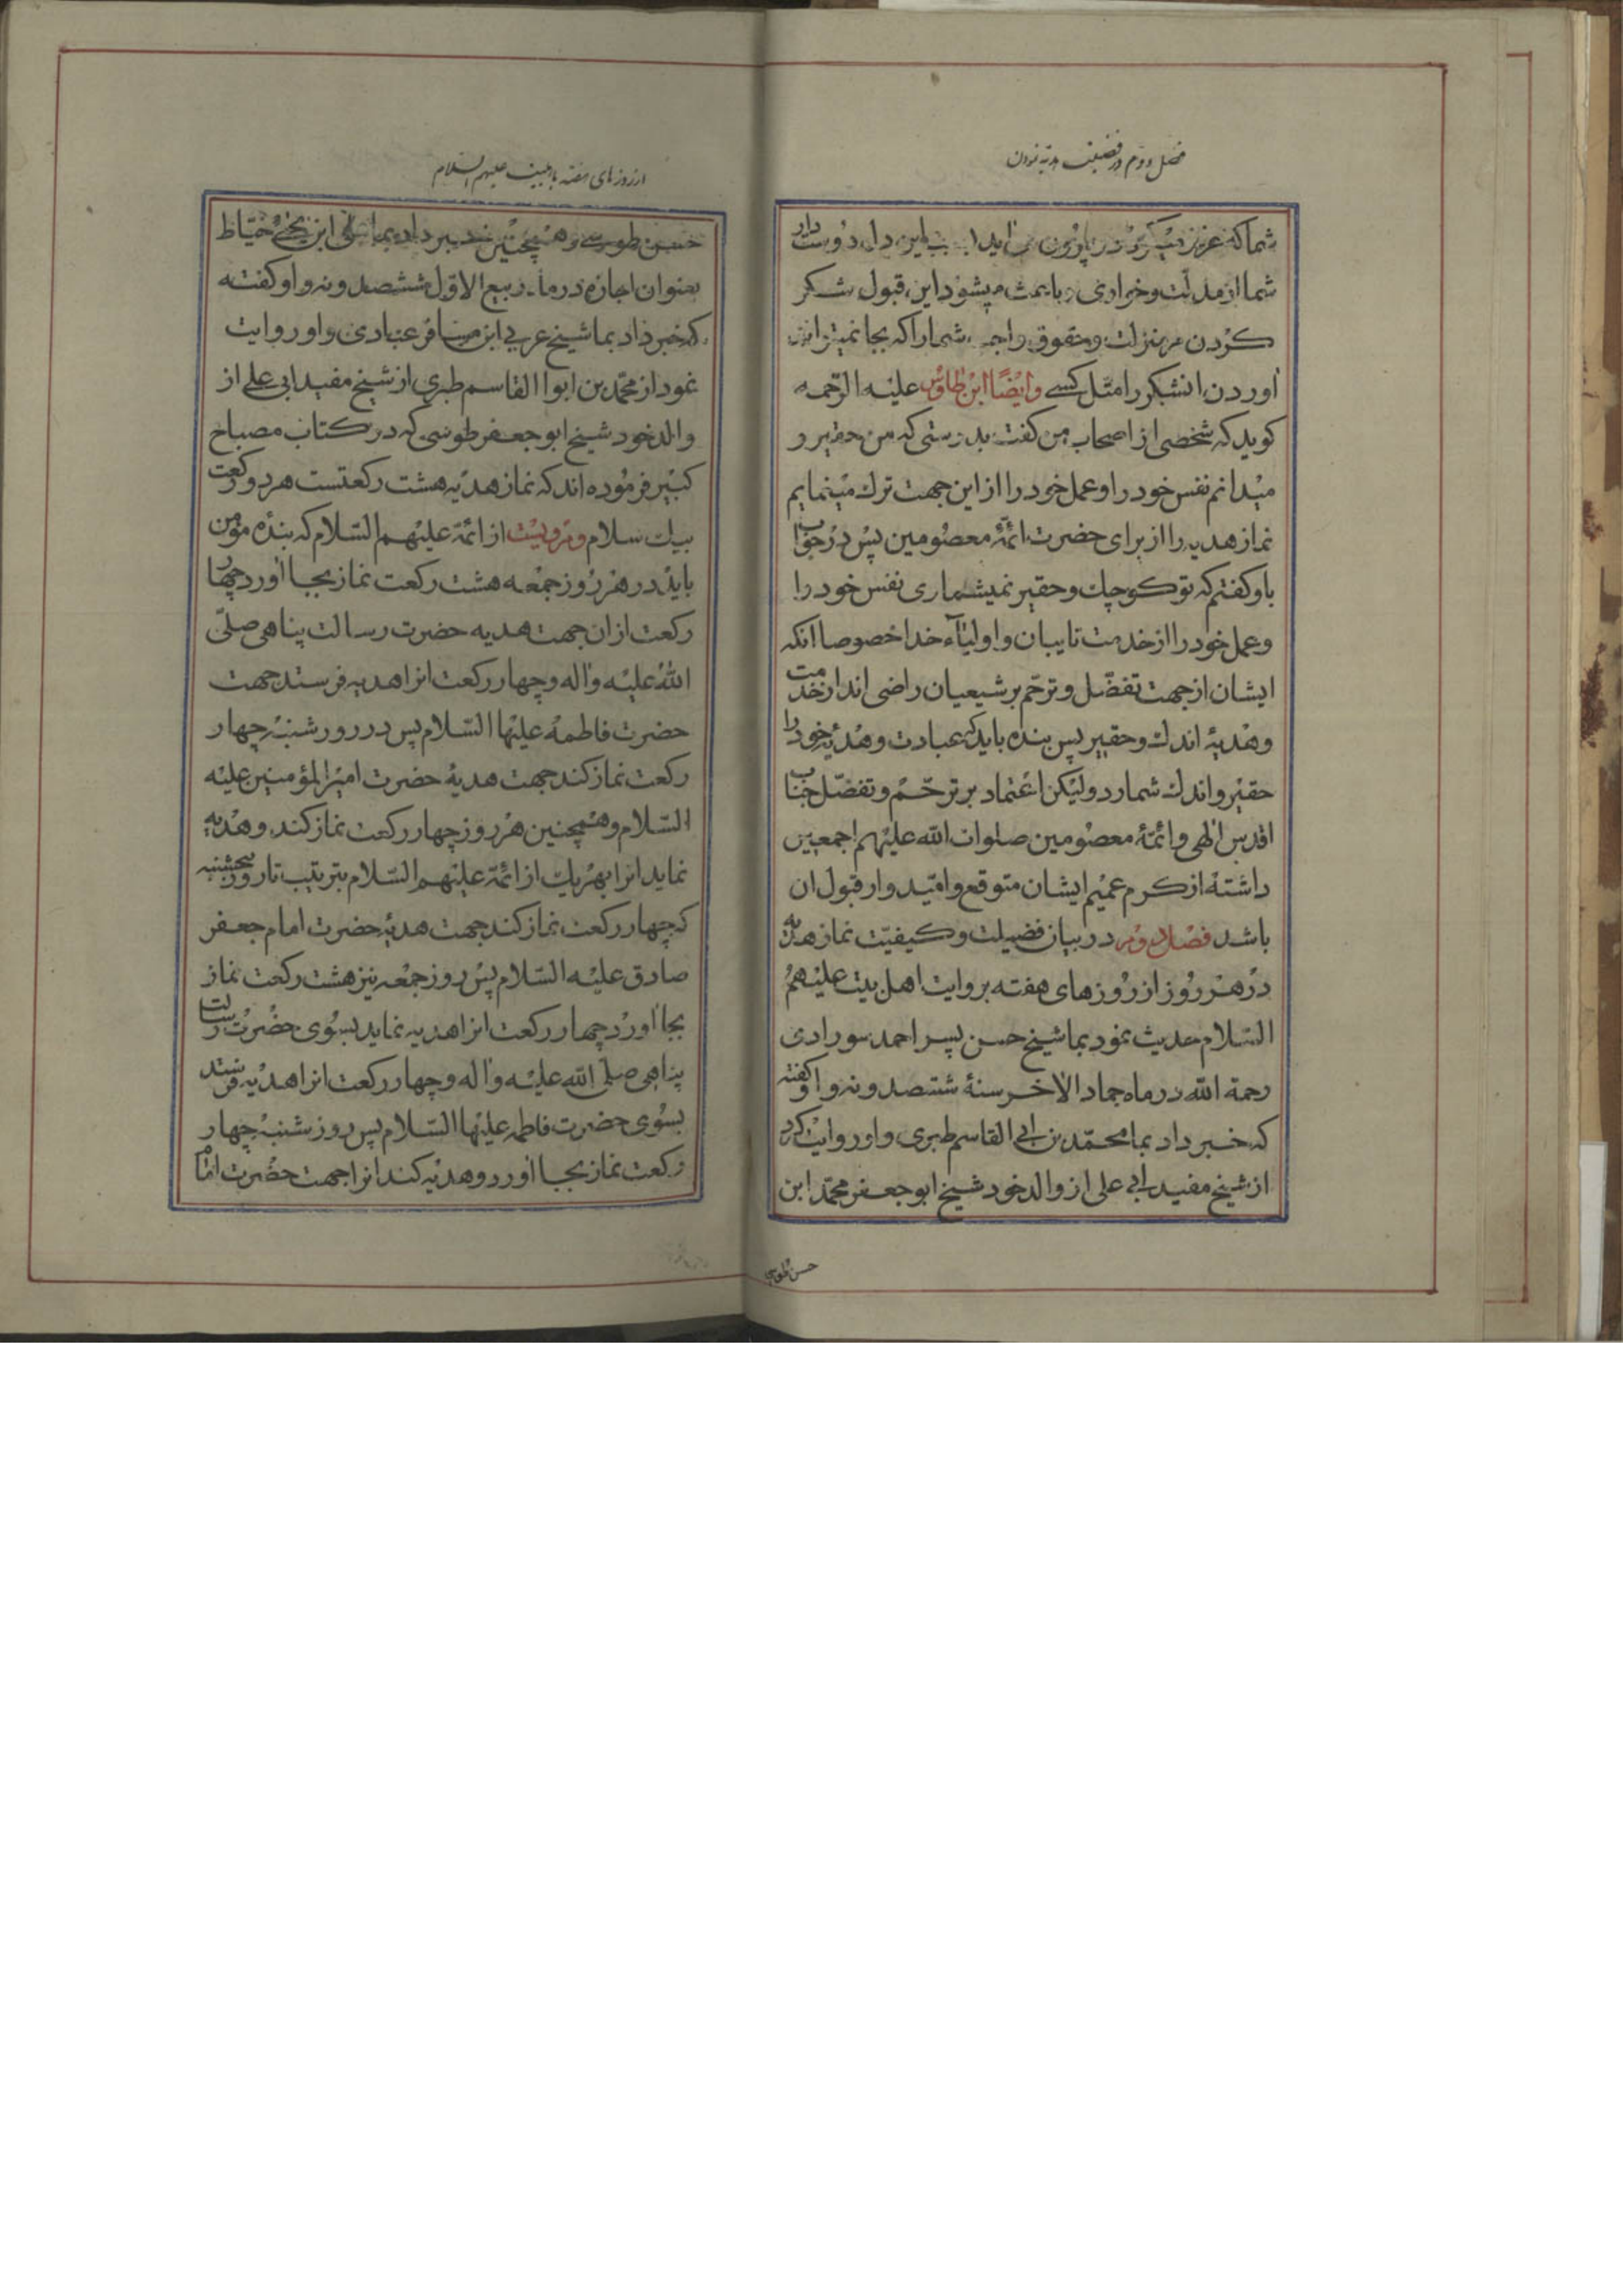 فصل دوم در فضیلت هدیه نمودن
شما که عزیز
شما از مذلت و خواری و باعث میشود این قبول شکر
کردن بر منزلت و حقوق واجبه شما را که بجا نمیتوان
اوردن انشکر را مثل کسی وایضا ابن طاوس علیه الرحمه
کوید که شخصی از اصحاب من کفت بدرستی که من حقیر و
میدانم نفس خود را و عمل خود را از این جهت ترک مینمایم
نماز هدیه را از برای حضرت ائمۀ معصومین پس در جواب
باو کفتم که تو کوچک و حقیر نمیشماری نفس خود را
و عمل خود را از خدمت نایبان و اولیآء خدا خصوصا انکه
ایشان از جهت تفضّل و ترحّم بر شیعیان راضی اند از خدمت
و هدیۀ اندک و حقیر پس بنده باید که عبادت و هدیۀ خود را
حقیر و اندک شمارد ولیکن اعتماد بر ترحّم و تفضّل جناب
اقدس الهی و ائمّۀ معصومین صلوات الله علیهم اجمعین
داشته از کرم عمیم ایشان متوقع و امّیدوار قبول ان
باشد فصل دوم در بیان فضیلت و کیفیّت نماز هدیه
در هر روز از روزهای هفته بروایت اهل بیت علیهم
السّلام حدیث نمود بما شیخ حسن پسر احمد سورادی
رحمة الله در ماه جماد الاخر سنۀ ششصد و نه و او کفته
که خبر داد بما محمّد بن ابی القاسم طبری و او روایت کرد
از شیخ مفید ابی علی از والد خود شیخ ابو جعفر محمّد ابن
حسن طوسی
از روزهای هفته باهلبیت علیهم السّلام
حسن طوسی و همچنین خبر داد بما علی ابن یحیی خیّاط
بعنوان اجازه در ماه ربیع الاوّل ششصد و نه و او کفته
که خبر داد بما شیخ عربی ابن مسافر عبادی و او روایت
نمود از محمّد بن ابوا القاسم طبری از شیخ مفید ابی علی از
والد خود شیخ ابو جعفر طوسی که در کتاب مصباح
کبیر فرموده اند که نماز هدیه هشت رکعتست هر دو رکعت
بیک سلام ومرویست از ائمّة علیهم السّلام که بنده مؤمن
باید در هر روز جمعه هشت رکعت نماز بجا اورد چهار
رکعت از ان جهت هدیه حضرت رسالت پناهی صلّی
الله علیه واله و چهار رکعت انرا هدیه فرستد جهت
حضرت فاطمۀ علیها السّلام پس در روز شنبه چهار
رکعت نماز کند جهت هدیۀ حضرت امیر المؤمنین علیه
السّلام و همچنین هر روز چهار رکعت نماز کند و هدیه
نماید انرا بهر یک از ائمّة علیهم السّلام بترتیب تا روز پنجشنبه
که چهار رکعت نماز کند جهت هدیۀ حضرت امام جعفر
صادق علیه السّلام پس روز جمعه نیز هشت رکعت نماز
بجا اورد چهار رکعت انرا هدیه نماید بسوی حضرت رسالت
پناهی صلی الله علیه واله و چهار رکعت انرا هدیه فرستد
بسوی حضرت فاطمه علیها السّلام پس روز شنبه چهار
رکعت نماز بجا اورد و هدیه کند انرا جهت حضرت امام